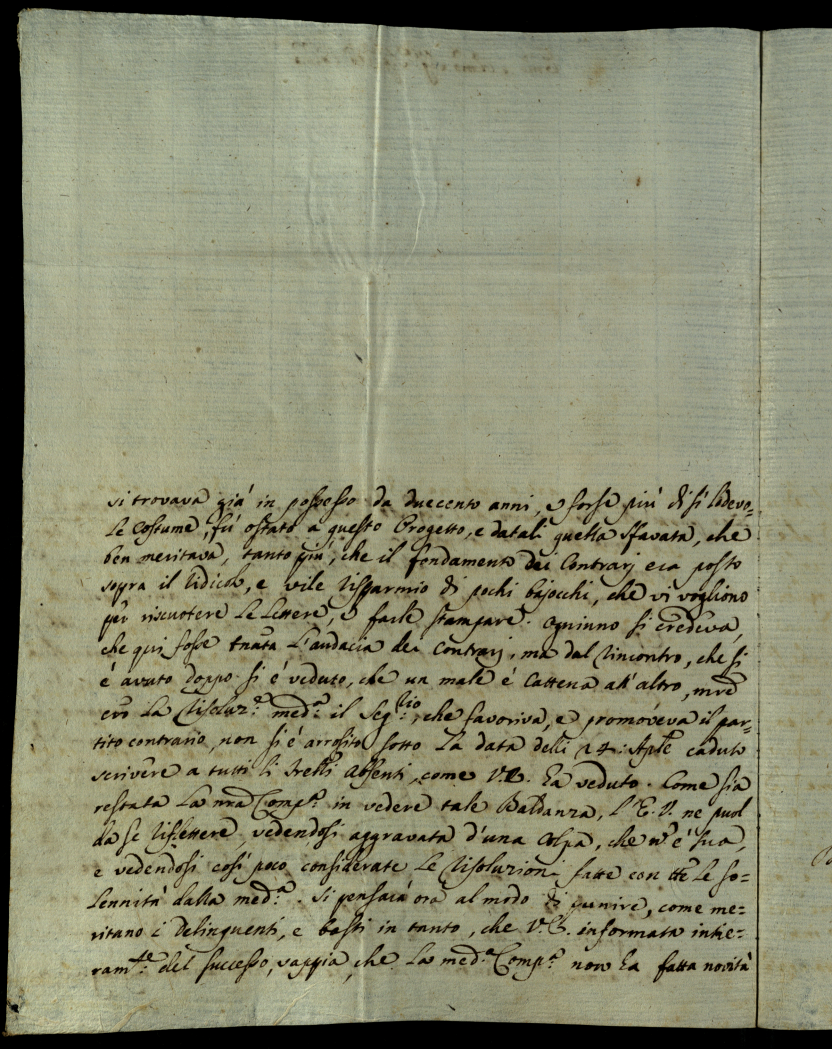 si trovava già in possesso da duecento anni, e forse più di sì lodevo=
le Costume, fù ostato a questo Progetto, e datali quella sfavata, che
ben meritava, tanto più, che il fondamento dei Contrarj era posto
sopra il ridicolo, e vile risparmio di pochi bajocchi, che vi vogliono
per riscuotere le lettere, e farle stampare. Ogniuno si credeva,
che qui fosse tnata l'audacia dei Contrarj, ma dal rincontro, che si
è avuto doppo si è veduto, che un male è Cattena all'altro,
la Risoluz.e med.a il Seg.rio, che favoriva, e promoveva il par=
tito contrario, non si è arrosito sotto la data delli 24: Aple caduto
scrivere a tutti li Frelli Assenti, come V.E. ha veduto. Come sia
restata la nra Comp.a in vedere tale Baldanza, l'E.V. ne puol
da se riflettere, vedendosi aggravata d'una Colpa, che nō è sua,
e vedendosi così poco considerate le risoluzioni fatte con tte le so=
lennità dalla med.a. Si penserà ora al modo di punire, come me=
ritano i Delinquenti, e basti in tanto, che V.E. informata intie=
ram.te del successo, sappia, che la med.a Comp.a non ha fatta novità